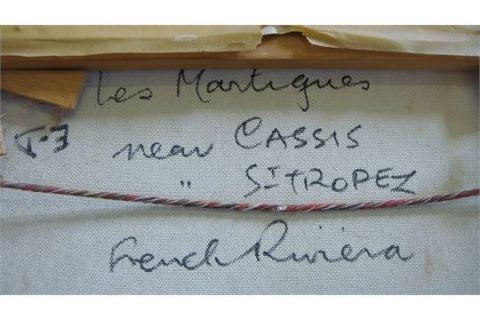 Les Martigues
T-3 near CASSIS
" ST TROPEZ
French Riviera